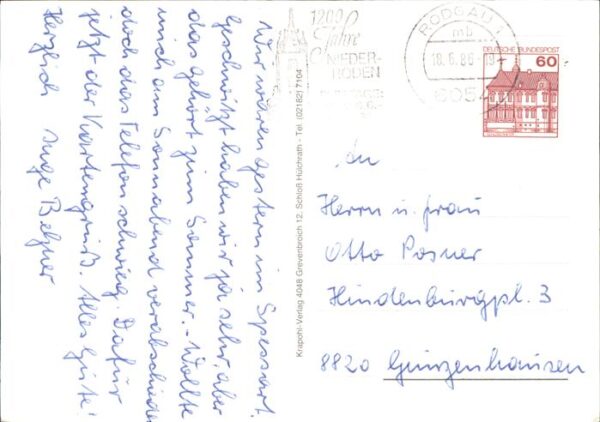 Wir waren gestern im Spessart.
Geschwitzt haben wir ja sehr, aber
das gehört zum Sommer. - Wollte
mich am Sonnabend verabschieden
doch das Telefon schwieg. Dafür
jetzt der Kartengruß. Alles Gute!
Herzlich Inge Belzner
Krapohl-Verlag 4048 Grevenbroich 12, Schloß Hülchrath - Tel. (02182) 7104
1200
Jahre
NIEDER-
RODEN
RODGAU 1
mb
18.6.86
6054
DEUTSCHE BUNDESPOST
60
An
Herrn u. Frau
Otto Posner
Hindenburgpl. 3
8820 Gunzenhausen